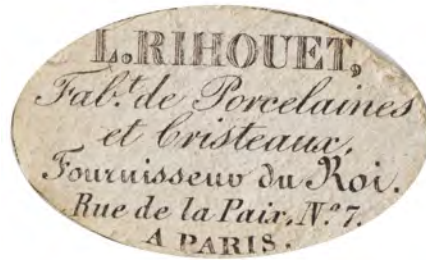 L. RIHOUET,
Fab.t de Porcelaines
et Cristeaux,
Fournisseur du Roi.
Rue de la Paix, N.o 7.
A PARIS.